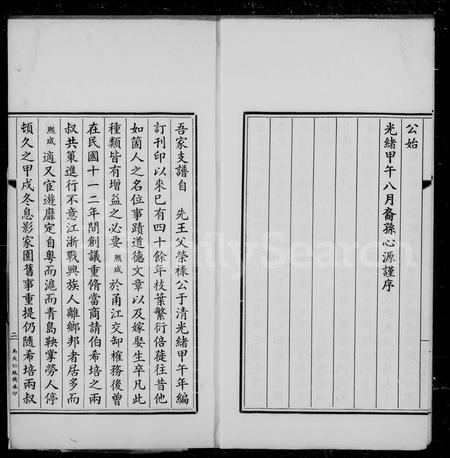 公始
光緒甲午八月裔孫心源謹序
吾家支譜自 先王父榮祿公于清光緒甲午年編
訂刊印以來已有四十餘年枝葉繁衍倍蓰往昔他
如箇人之名位事蹟道德文章以及嫁娶生卒凡此
種類皆有增益之必要熙成於甬江交卸榷務後曾
在民國十一二年間創議重脩當商請伯希培之兩
叔共策進行不意江浙戰興族人離鄉邦者居多而
熙成適又宦遊靡定自粵而滬而青島鞅掌勞人停
頓久之甲戌冬息影家園舊事重提仍隨希培兩叔
二
FamilySearch